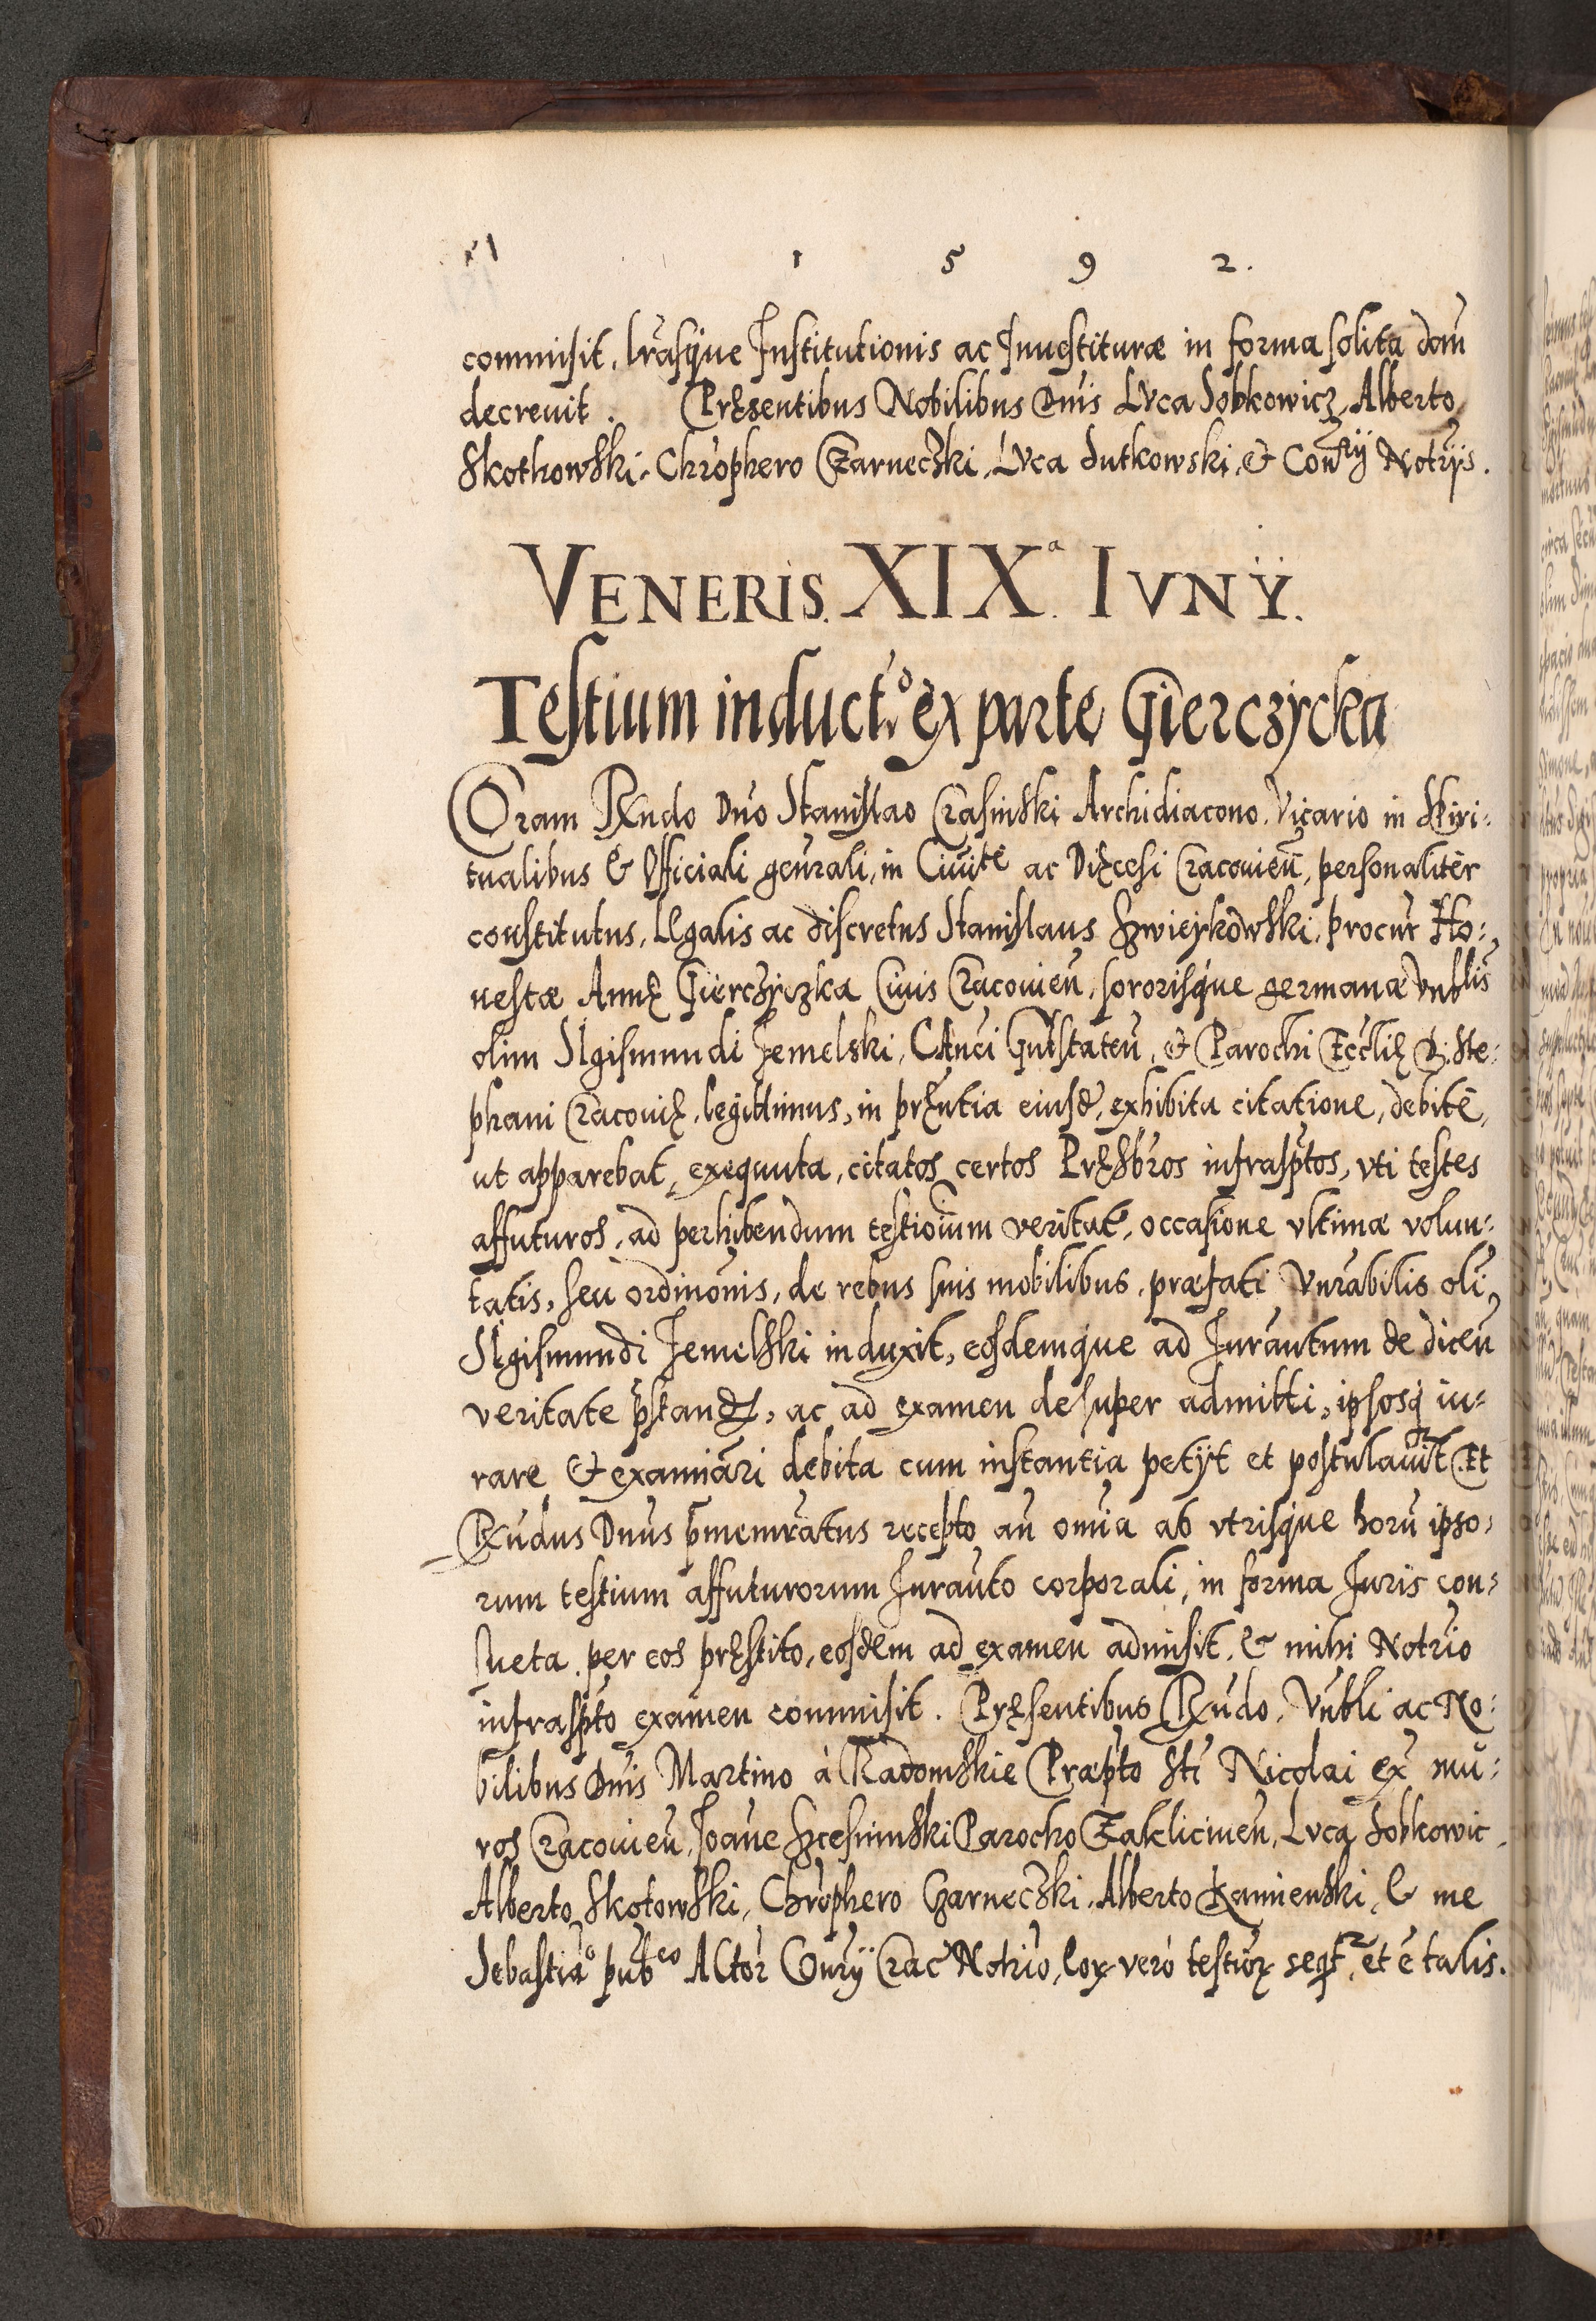 1 5 9 2.
commisit, lrasq̃ue Institutionis ac Inuestituræ in forma solita dañ
decreuit. Pręsentibus Nobilibus Dñis Lvca Sobkowicz, Alberto
Skothowski, Chr̃ophero Czarneczki, Lvca Sutkowski, & Con̄rij Notr̃ijs.
VENERIS. XIXª. IVNŸ.
Testium induct.º ex parte Gierczÿcka
Coram Rñdo Dño Stanislao Crasinski Archidiacono, Vicario in Spiri:
tualibus & Officiali geñrali, in Ciuit̃e ac Dięcesi Cracouieñ, personaliter
constitutus, Legalis ac discretus Stanislaus Szwieykowski, procur̃ Ho:
nestæ Annę Gierczyczka Ciuis Cracouieñ, sororisq̃ue germanæ Vnb̃lis
olim Sigismundi Jemelski, Canci Gutstateñ, & Parochi Eccl̃ię D. Ste:
phani Cracouię, legittimus, in pręñtia eiusd̃, exhibita citatione, debite,
ut apparebat, exequuta, citatos certos Pręsbr̃os infrasp̃tos, vti testes
affuturos, ad perhibendum testioĩum veritat̃, occasione vltimæ volun:
tatis, seu ordinõnis, de rebus suis mobilibus, præfati Vnr̃abilis oli͂
Sigismundi Jemelski induxit, eosdemque ad Juramẽtum de diceñ
veritate p̃stand̃, ac ad examen desuper admitti, ipsosq̃ iu:
rare & examiãri debita cum instantia petijt et postulauit. Et
Rñdus Dñus p̃memratus recepto añ om̃ia ab vtrisque horũ ipso:
rum testium affuturorum Jurañto corporali, in forma Juris con:
sueta per eos pręstito, eosdem ad examen admisit, & mihi Notr̃io
infrasp̃to examen commisit. Pręsentibus Rñdo, Vnb̃li ac No:
bilibus Dñis Martino à Radomskie Præpt̃o Sti Nicolai ex mu:
ros Cracouieñ, Joañe Szcesninski Parocho Zaklicineñ, Lvca Sobkowic,
Alberto Skotowski, Chr̃ophero Czarneczki, Alberto Kamienski, & me
Sebastiaº pub̃co Actor̃ Con̄rij Crac̃ Notr̃io, Cor̃ vero testiũ seq̃t.r et ẽ talis.